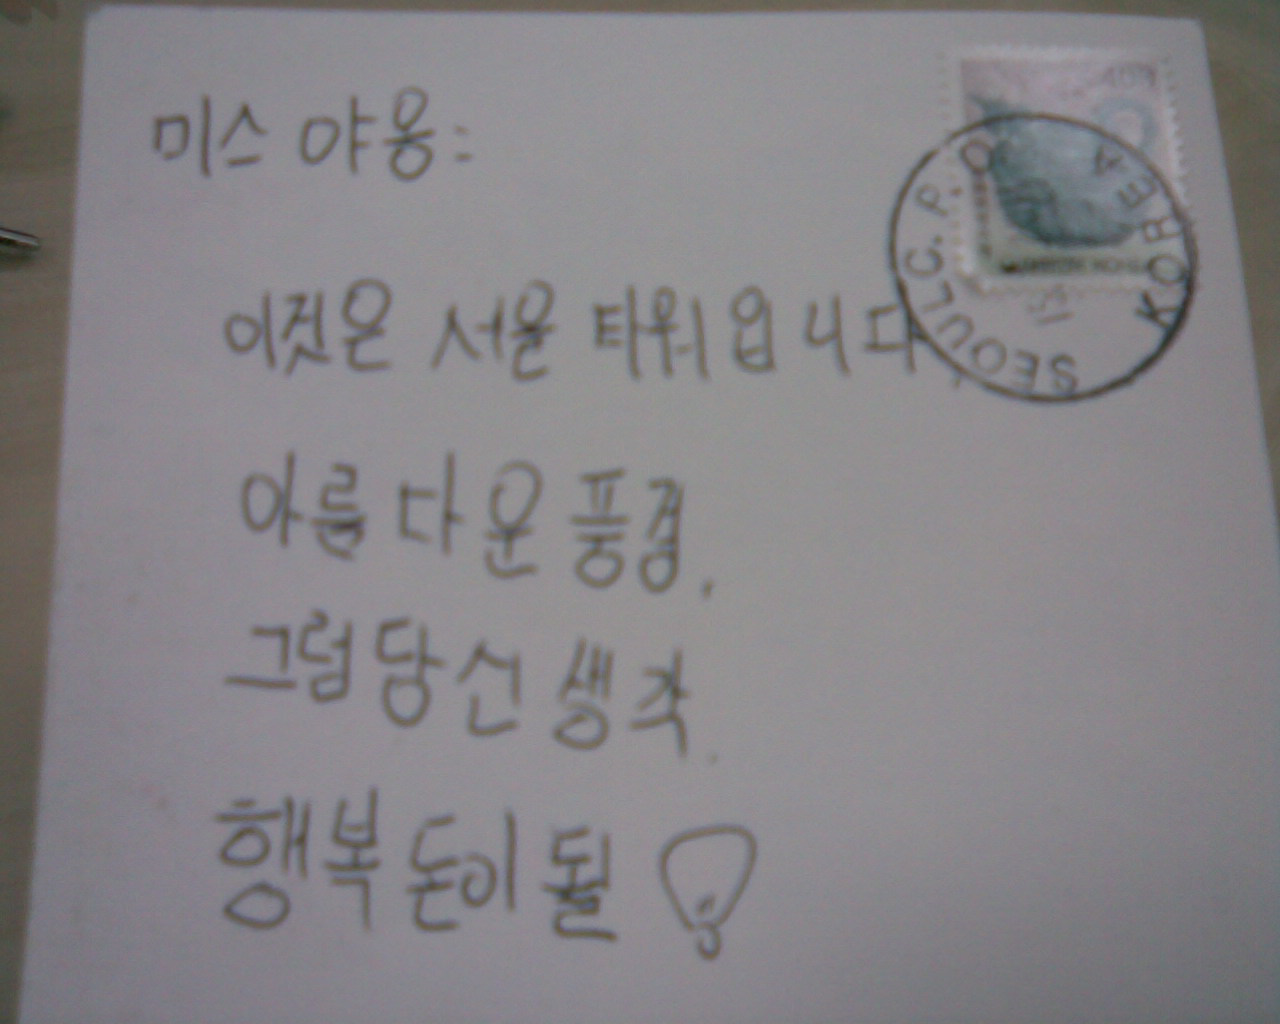 미스 야옹:
이것은 서울 타워입니다.
아름다운 풍경.
그럼 당신 생각.
행복 돈이 될
SEOUL C.P.O
KOREA